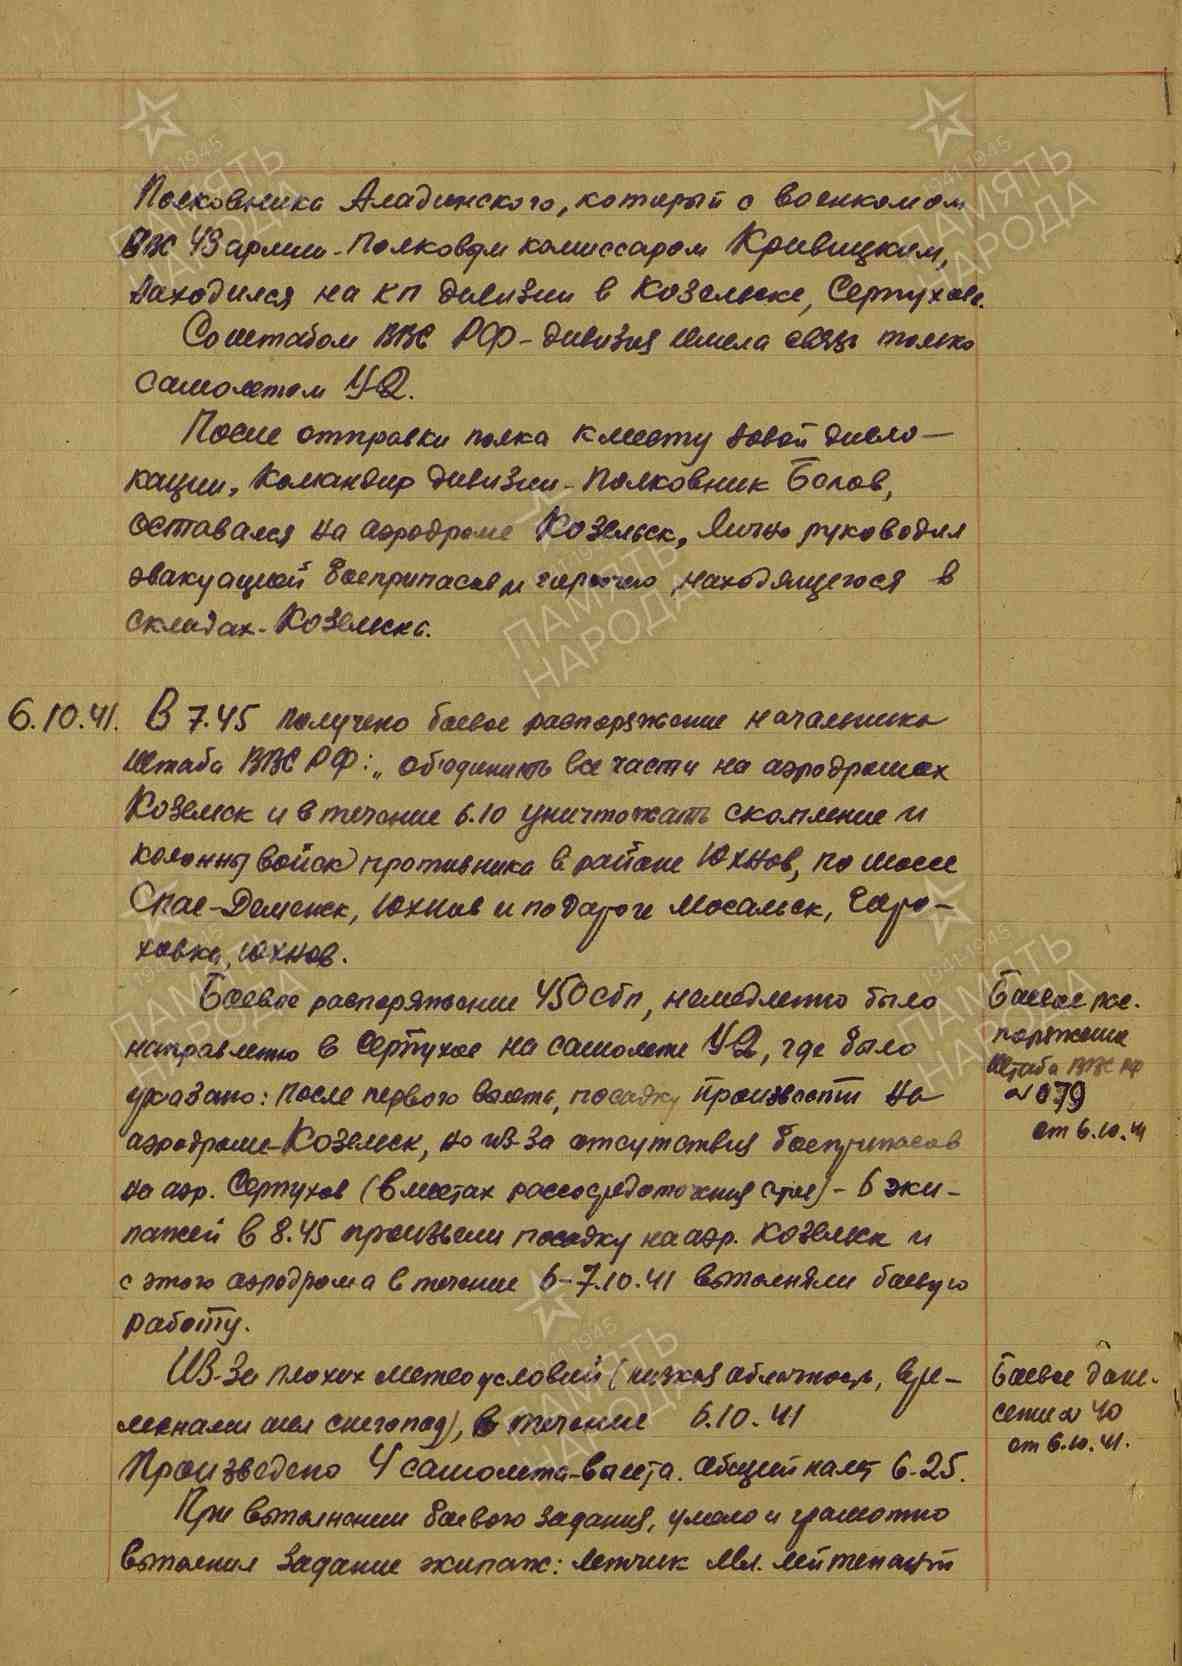 Полковника Аладинского, который с военкомом
ВВС 43 армии - полковым комиссаром Кривицким,
находился на КП дивизии в Козельске, Серпухове.
Со штабом ВВС РФ - дивизия имела связь только
самолетом У-2.
После отправки полка к месту новой дисло-
кации, командир дивизии - Полковник
оставался на аэродроме Козельск, лично руководил
эвакуацией боеприпасов и горючего находящегося в
складах - Козельска.
6.10.41. В 7.45 получено боевое распоряжение начальника
штаба ВВС РФ: „объединить все части на аэродромах
Козельск и в течение 6.10 уничтожать скопление и
колонны войск противника в районе Юхнов, по шоссе
Спас-Деменск, Юхнов и по дороге Мосальск,
ховка, Юхнов.
Боевое распоряжение 450 сбп, немедленно было
направлено в Серпухов на самолете У-2, где было
указано: после первого вылета, посадку произвести на
аэродроме - Козельск, но из-за отсутствия боеприпасов
на аэр. Серпухов (в местах рассредоточения) - 6 эки-
пажей в 8.45 произвели посадку на аэр. Козельск и
с этого аэродрома в течение 6-7.10.41 выполняли боевую
работу.
Боевое рас-
поряжение
Штаба ВВС РФ
№ 079
от 6.10.41
Из-за плохих метеоусловий (низкая облачность, вре-
менами шел снегопад), в течение 6.10.41
Произведено 4 самолета-вылета. Общий налет 6-25.
При выполнении боевого задания, умело и грамотно
выполнил задание экипаж: летчик мл. лейтенант
Боевое доне-
сение № 40
от 6.10.41.
1941-1945
ПАМЯТЬ
НАРОДА
1941-1945
ПАМЯТЬ
НАРОДА
1941-1945
ПАМЯТЬ
НАРОДА
1941-1945
ПАМЯТЬ
НАРОДА
1941-1945
ПАМЯТЬ
НАРОДА
1941-1945
ПАМЯТЬ
НАРОДА